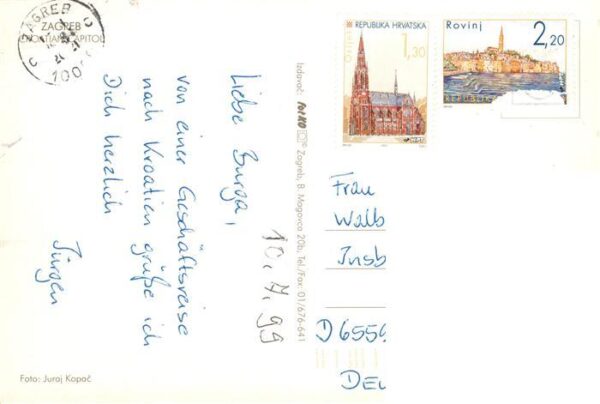 ZAGREB
ZAGREB
CROATIAN CAPITOL
REPUBLIKA HRVATSKA
1,30
Rovinj
2,20
Liebe Burga,
von einer Geschäftsreise
nach Kroatien grüße ich
Dich herzlich
Jürgen
10.7.99
Izdavač: Fot KO © Zagreb, B. Magovca 20b, Tel./Fax: 01/676-641
Frau
Walb
Insb
D 6559
DEU
Foto: Juraj Kopač